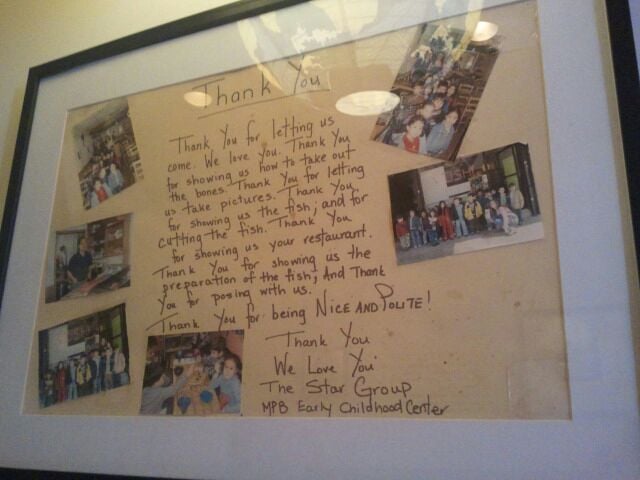 Thank You
Thank You for letting us
come. We love you. Thank You
for showing us how to take out
the bones. Thank You for letting
us take pictures. Thank You
for showing us the fish; and for
cutting the fish. Thank You
for showing us your restaurant.
Thank You for showing us the
preparation of the fish; And Thank
You for posing with us.
Thank You for being NICE AND POLITE!
Thank You
We Love You
The Star Group
MPB Early Childhood Center